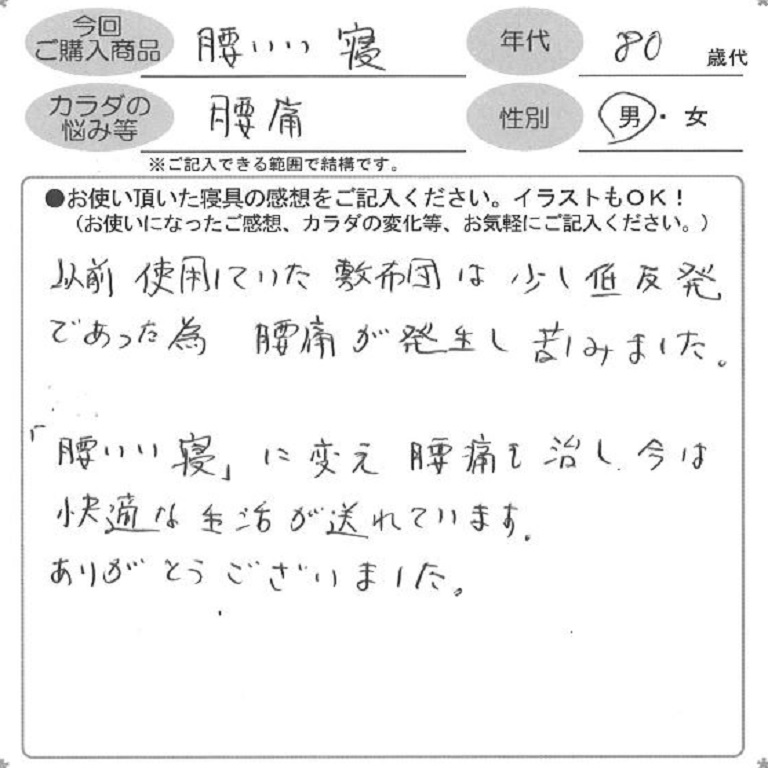 今回
ご購入商品
腰いい寝
年代
80 歳代
カラダの
悩み等
腰痛
性別
男・女
※ご記入できる範囲で結構です。
●お使い頂いた寝具の感想をご記入ください。イラストもOK！
（お使いになったご感想、カラダの変化等、お気軽にご記入ください。）
以前使用していた敷布団は少し低反発
であった為 腰痛が発生し苦しみました。
「腰いい寝」に変え腰痛も治し、今は
快適な生活が送れています。
ありがとうございました。